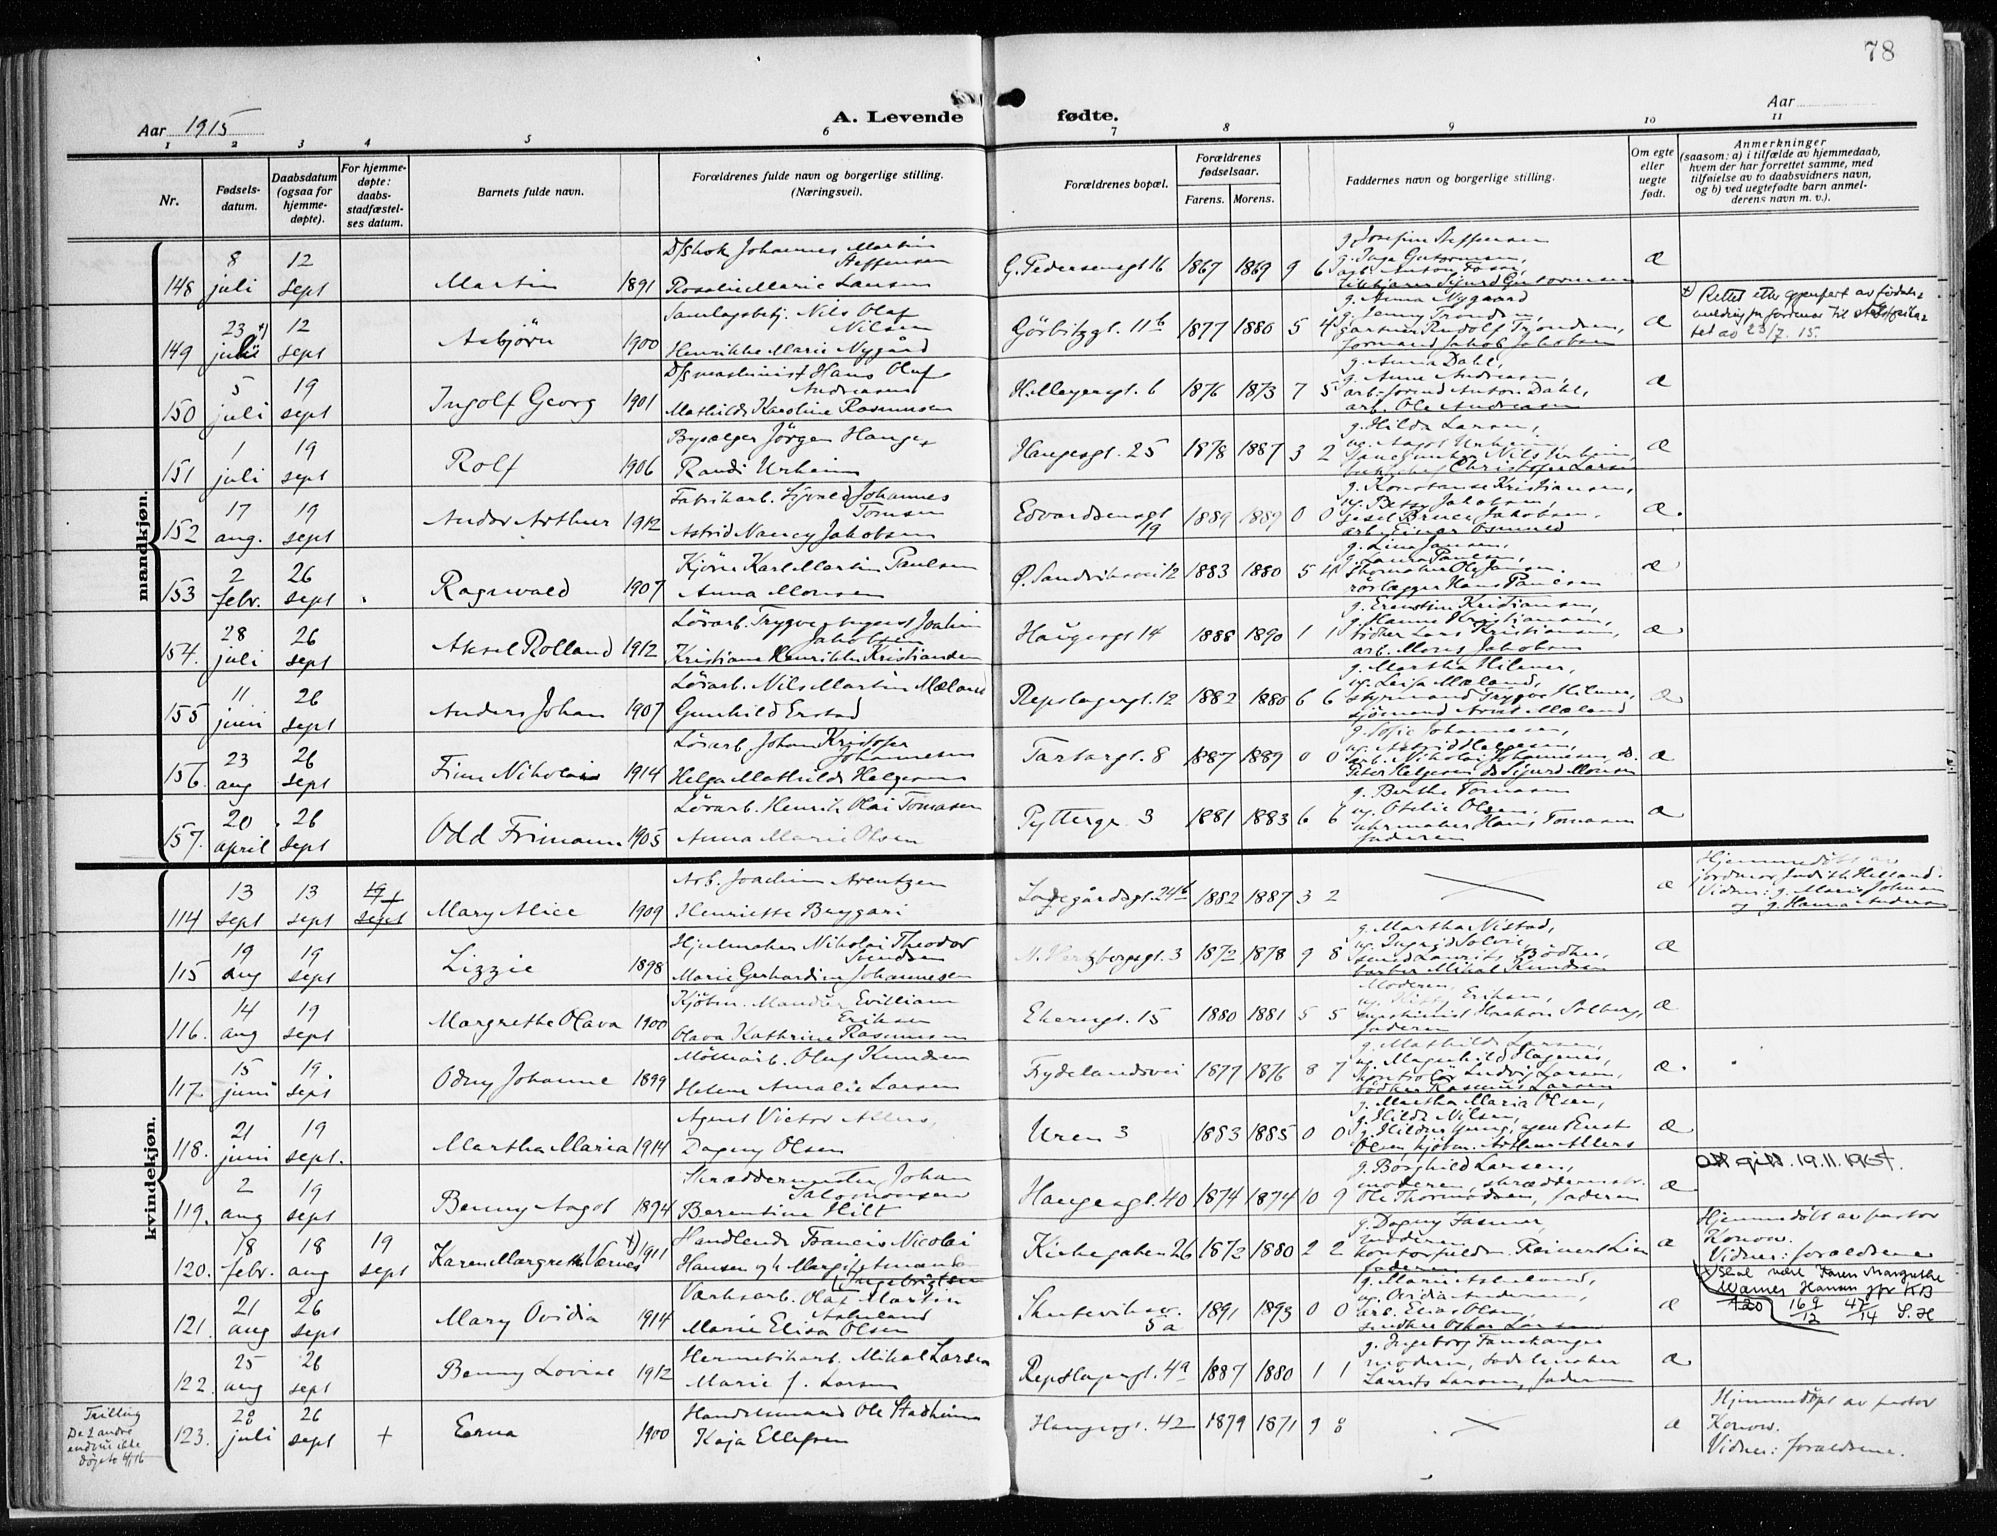 78
Aar 1915
A. Levende fødte.
Aar
1 2 3 4 5 6 7 8 9 10 11
Nr.
Fødsels-
datum.
Daabsdatum
(ogsaa for
hjemme-
døpte).
For hjemme-
døpte:
daabs-
stadfæstel-
ses datum.
Barnets fulde navn.
Forældrenes fulde navn og borgerlige stilling.
(Næringsvei).
Forældrenes bopæl.
Forældrenes
fødselsaar.
Farens. Morens.
Faddernes navn og borgerlige stilling.
Om egte
eller
uegte
født.
Anmerkninger
(saasom: a) i tilfælde av hjemmedaab,
hvem der har forrettet samme, med
tilføielse av to daabsvidners navn,
og b) ved uegtefødte barn anmel-
derens navn m. v.).
mandkjøn.
148 8 juli 12 sept Martin 1891
Johannes Martin
Steffensen
Rosalie Marie Larsen
G. Pedersensgt 16 1867 1869 9 6
g. Josefine Steffensen
æ
149 23 juli 12 sept Asbjörn 1900
Nils Olaf
Nilsen
Henrikke Marie Nygård
Görbitzgt. 11b 1877 1880 5 4
g. Anna Nygaard
g. Jenny Trondsen,
gartner Rudolf Trondsen,
formand Jakob Jakobsen
æ
150 5 juli 19 sept Ingolf Georg 1901
D/smaskinist Hans Olaf
Andreasen
Mathilde Karoline Rasmussen
H. Meyersgt. 6 1876 1873 7 5
g. Anna Dahl,
g. Anne Andreasen,
arb.formd Anton Dahl,
arb. Ole Andreasen
æ
151 1 juli 19 sept Rolf 1906
Bysælger Jörgen Hauge,
Randi Urheim
Haugesgt. 25 1878 1887 3 2
g. Hilda Larsen,
Christofer Larsen
æ
152 17 aug. 19 sept Andor Arthur 1912
Fabrikarb. Sjvald Johannes
Tomsen
Astrid Nancy Jakobsen
Edvardsensgt
19 1889 1889 0 0
g. Konstanse Kristiansen,
ug. Betsy Jakobsen
æ.
153 2 febr. 26 sept Ragnvald 1907
Kjörer Karl Martin Paulsen
Anna Monsen
Ø. Sandviksvei 12 1883 1880 5 4
g. Lina Jansen,
g. Laura Paulsen,
rörlægger Hans Paulsen
æ
154. 28 juli 26 sept Aksel Rolland 1912
Lösarb. Trygve Joakim
Jakobsen
Kristiane Henrikke Kristiansen
Haugesgt 14 1888 1890 1 1
g. Ernstine Kristiansen,
g. Hanne Kristiansen,
bödker Lars Kristiansen,
arb. Mons Jakobsen
æ
155 11 juni 26 sept Anders Johan 1907
Lösarb. Nils Martin Mæland
Gunhild Erstad
Repslagergt. 12 1882 1880 6 6
g. Martha Hilmer,
styrmand Trygve Hilmer,
æ
156. 23 aug 26 sept Finn Nikolai 1914
Lösarb. Johan Kristofer
Johannesen
Helga Mathilde Helgesen
Tartargt. 8 1887 1889 0 0
g. Sofie Johannesen,
ug. Astrid Helgesen,
arb. Nikolai Johannesen, do.
Peter Helgesen do Sigurd Monsen
æ
157. 20 april 26 sept Odd Frimann 1905
Lösarb. Henrik Olai Tomasen
Anna Marie Olsen
Pyttergr. 3 1881 1883 6 6
g. Berthe Tomasen
ug. Otelie Olsen,
uhrmaker Hans Tomasen
faderen
æ
kvindekjøn.
114 13 sept 13 sept 19 sept Mary Alice 1909
Arb. Joachim Arentzen
Henriette Brygari
Ladegårdsgt. 24b 1882 1887 3 2
æ
Hjemmedöbt av
jordmor Judith Helland.
Vidner: g. Marie Johnsen
og g. Hanna Andersen
115 19 aug 19 sept Lizzie 1898
Hjulmaker Nikolai Theodor
Svendsen
Marie Gerhardine Johannesen
N. Hertzbergsgt. 3 1872 1878 9 8
g. Martha Nistad,
ug. Ingrid Solvie,
barber Mikal Knudsen
æ
116. 14 aug 19 sept Margrethe Olava 1900
Evilliam
Eriksen
Olava Kathrine Rasmussen
Ekerengt. 15 1880 1881 5 5
Moderen,
maskinist Haakon Solberg,
faderen
æ
117. 15 juni 19. sept Odny Johanne 1899
Möllearb. Oluf Knudsen
Helene Amalie Larsen
Frydelandsvei 1877 1876 8 7
g. Mathilde Larsen,
ug. Magnhild Hagenes,
kontrolör Ludvig Larsen,
bödker Rasmus Larsen
æ.
118. 21 juni 19 sept. Martha Maria 1914
Agent Victor Allers,
Dagny Olsen
Uren 3 1883 1885 0 0
g. Martha Maria Olsen,
g. Hilda Nilsen,
Olsen kjöbm. Arthur Allers
æ
119. 2 aug 19 sept Benny Aagot 1894
Skræddermester Johan
Salomonsen
Berentine Hilt
Haugesgt. 40 1874 1874 10 9
g. Borghild Larsen,
moderen, skræddermstr.
Ole Thormodsen, faderen
æ
Att. gitt. 19.11.1964.
120. 18 febr. 18 aug 19 sept Karen Margrethe Værnes 1911
Handlende Francis Nicolai
Hansen og h. Margit Amanda
Ingebrigtsen
Kirkegaten 26 1872 1880 2 2
g. Dagny Fasmer,
moderen,
kontorfuldm. Reinert Lien
faderen
æ
Hjemmedöbt av pastor
Konow.
Vidner: forældrene
Skal være Karen Margrethe
Warnes Hansen jfr KB
120 169/12 47/14 S.H
121. 21 aug 26 sept Mary Ovidia 1914
Værksarb. Olaf Martin
Askeland
Marie Elisa Olsen
Skuteviksv.
5a 1891 1893 0 0
g. Marie Askeland,
ug. Ovidia Andersen,
arb. Elias Olsen,
Oskar Larsen
æ
122. 25 aug 26 sept Benny Lovise 1912
Hermetikarb. Mikal Larsen
Marie f. Larsen
Repslagergt. 4a 1887 1880 1 1
g. Ingeborg Farestanger
moderen, sadelmaker
Laurits Larsen, faderen
æ
Trilling
De 2 andre
endnu ikke
døpte 4/16
123. 28 juli 26 sept + Erna 1900
Handelsmand Ole Stadheim
Kaja Ellefsen
Haugesgt. 42 1879 1871 9 8
æ
Hjemmedøpt av pastor
Konow.
Vidner: forældrene.